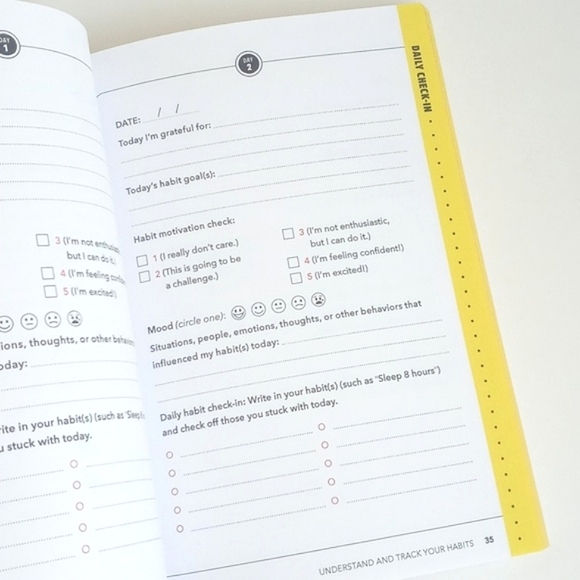 DAY
1
3 (I'm not enthusias
but I can do it.)
4 (I'm feeling confid
5 (I'm excited!)
ions, thoughts, or other behavio
oday:
rite in your habit(s) (such as 'Sleep 8
u stuck with today.
DAY
2
DATE: / /
Today I'm grateful for:
Today's habit goal(s):
Habit motivation check:
1 (I really don't care.)
2 (This is going to be
a challenge.)
3 (I'm not enthusiastic,
but I can do it.)
4 (I'm feeling confident!)
5 (I'm excited!)
Mood (circle one):
Situations, people, emotions, thoughts, or other behaviors that
influenced my habit(s) today:
Daily habit check-in: Write in your habit(s) (such as 'Sleep 8 hours')
and check off those you stuck with today.
UNDERSTAND AND TRACK YOUR HABITS 35
DAILY CHECK-IN